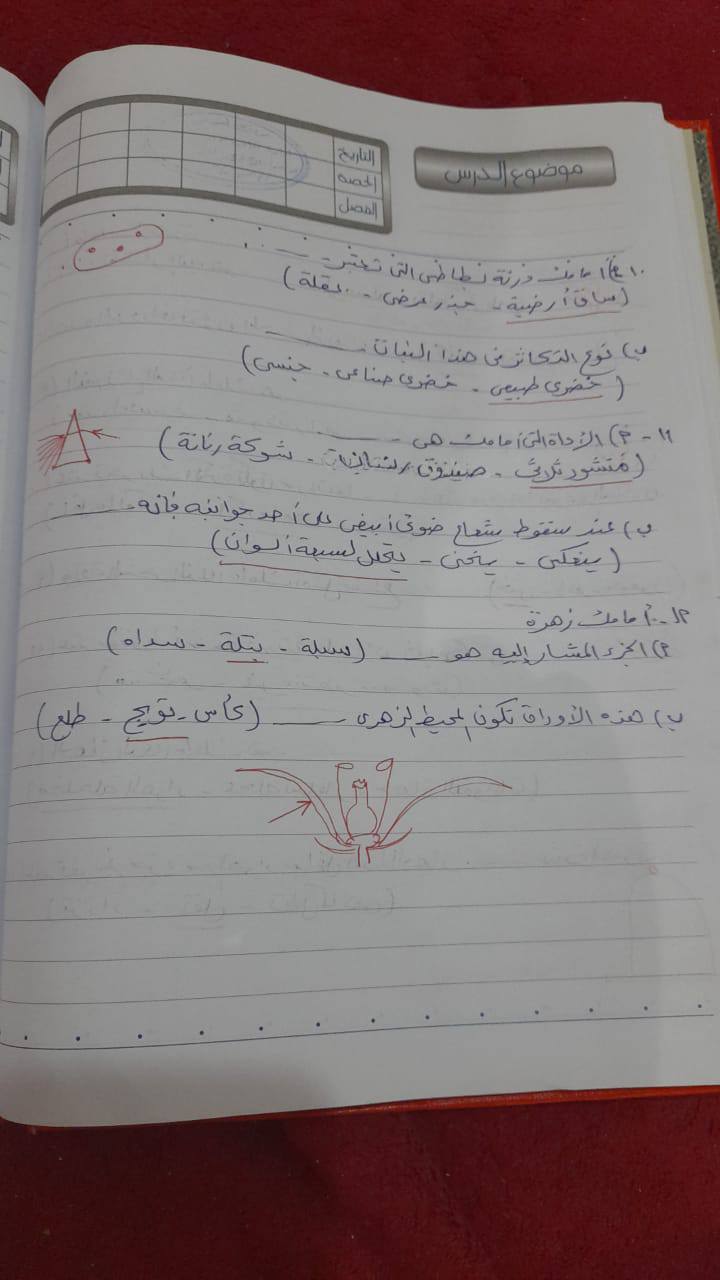 موضوع الدرس
التاريخ
الحصة
الفصل
١٠- أ) أمامك درنة بطاطس التى تعتبر ـــــ
(ساق أرضية - جذر عرضى - عقلة)
ب) نوع التكاثر فى هذا النبات ـــــ
(خضرى طبيعى - خضرى صناعى - جنسى)
١١- أ) الأداة التى أمامك هى ـــــ
(منشور ثلاثى - صندوق - شوكة رنانة)
ب) عند سقوط شعاع ضوئى أبيض على أحد جوانبه فأنه ـــــ
(ينعكس - ينحنى - يتحلل لسبعة ألوان)
١٢- أمامك زهرة
أ) الجزء المشار إليه هو ـــــ (سبلة - بتلة - سداه)
ب) هذه الأوراق تكون المحيط الزهرى ـــــ (كأس - تويج - طلع)